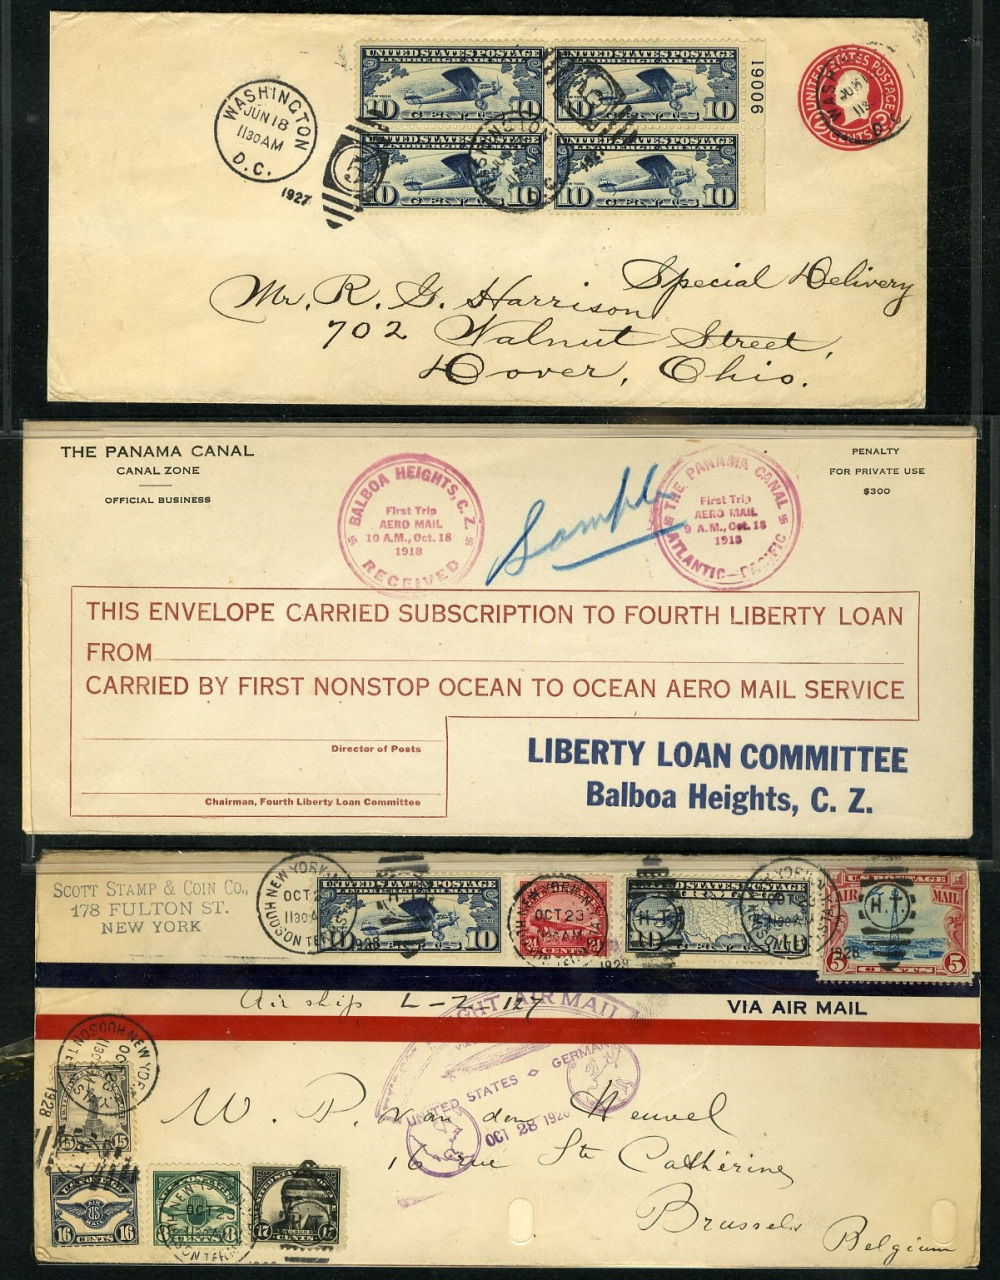 UNITED STATES POSTAGE
LINDBERGH AIR MAIL
10 CENTS 10
UNITED STATES POSTAGE
LINDBERGH AIR MAIL
10 CENTS 10
19006
UNITED STATES POSTAGE
2 CENTS 2
WASHINGTON
JUN 18
1130 AM
D.C.
1927
5
LINDBERGH AIR MAIL
10 CENTS 10
LINDBERGH AIR MAIL
10 CENTS 10
1927
Special Delivery
Mr. R. G. Harrison
702 Walnut Street,
Dover, Ohio.
THE PANAMA CANAL
CANAL ZONE
OFFICIAL BUSINESS
BALBOA HEIGHTS, C. Z.
First Trip
AERO MAIL
10 A.M., Oct. 18
1918
RECEIVED
Sample
THE PANAMA CANAL
First Trip
AERO MAIL
9 A.M., Oct. 18
1918
ATLANTIC—PACIFIC
PENALTY
FOR PRIVATE USE
$300
THIS ENVELOPE CARRIED SUBSCRIPTION TO FOURTH LIBERTY LOAN
FROM
CARRIED BY FIRST NONSTOP OCEAN TO OCEAN AERO MAIL SERVICE
Director of Posts
Chairman, Fourth Liberty Loan Committee
LIBERTY LOAN COMMITTEE
Balboa Heights, C. Z.
SCOTT STAMP & COIN CO.,
178 FULTON ST.
NEW YORK
NEW YORK, N.Y.
HUDSON TERM. STA.
OCT 2
1130 AM
1928
UNITED STATES POSTAGE
LINDBERGH AIR MAIL
10
OCT 23
1928
CENTS
UNITED STATES POSTAGE
10
U.S. POSTAGE
AIR MAIL
H.T.
5 CENTS 5
1928
Air ship L-Z-127
VIA AIR MAIL
FLIGHT AIR MAIL
UNITED STATES GERMANY
OCT 28 1928
NEW YORK
HUDSON TERM. STA.
1928
15 15
W. P. van den Heuvel
16 rue Ste Catherine
Brussels
Belgium
U.S. POSTAGE
AIR MAIL
US
16 CENTS 16
8 CENTS 8
OCT 2
17 CENTS 17